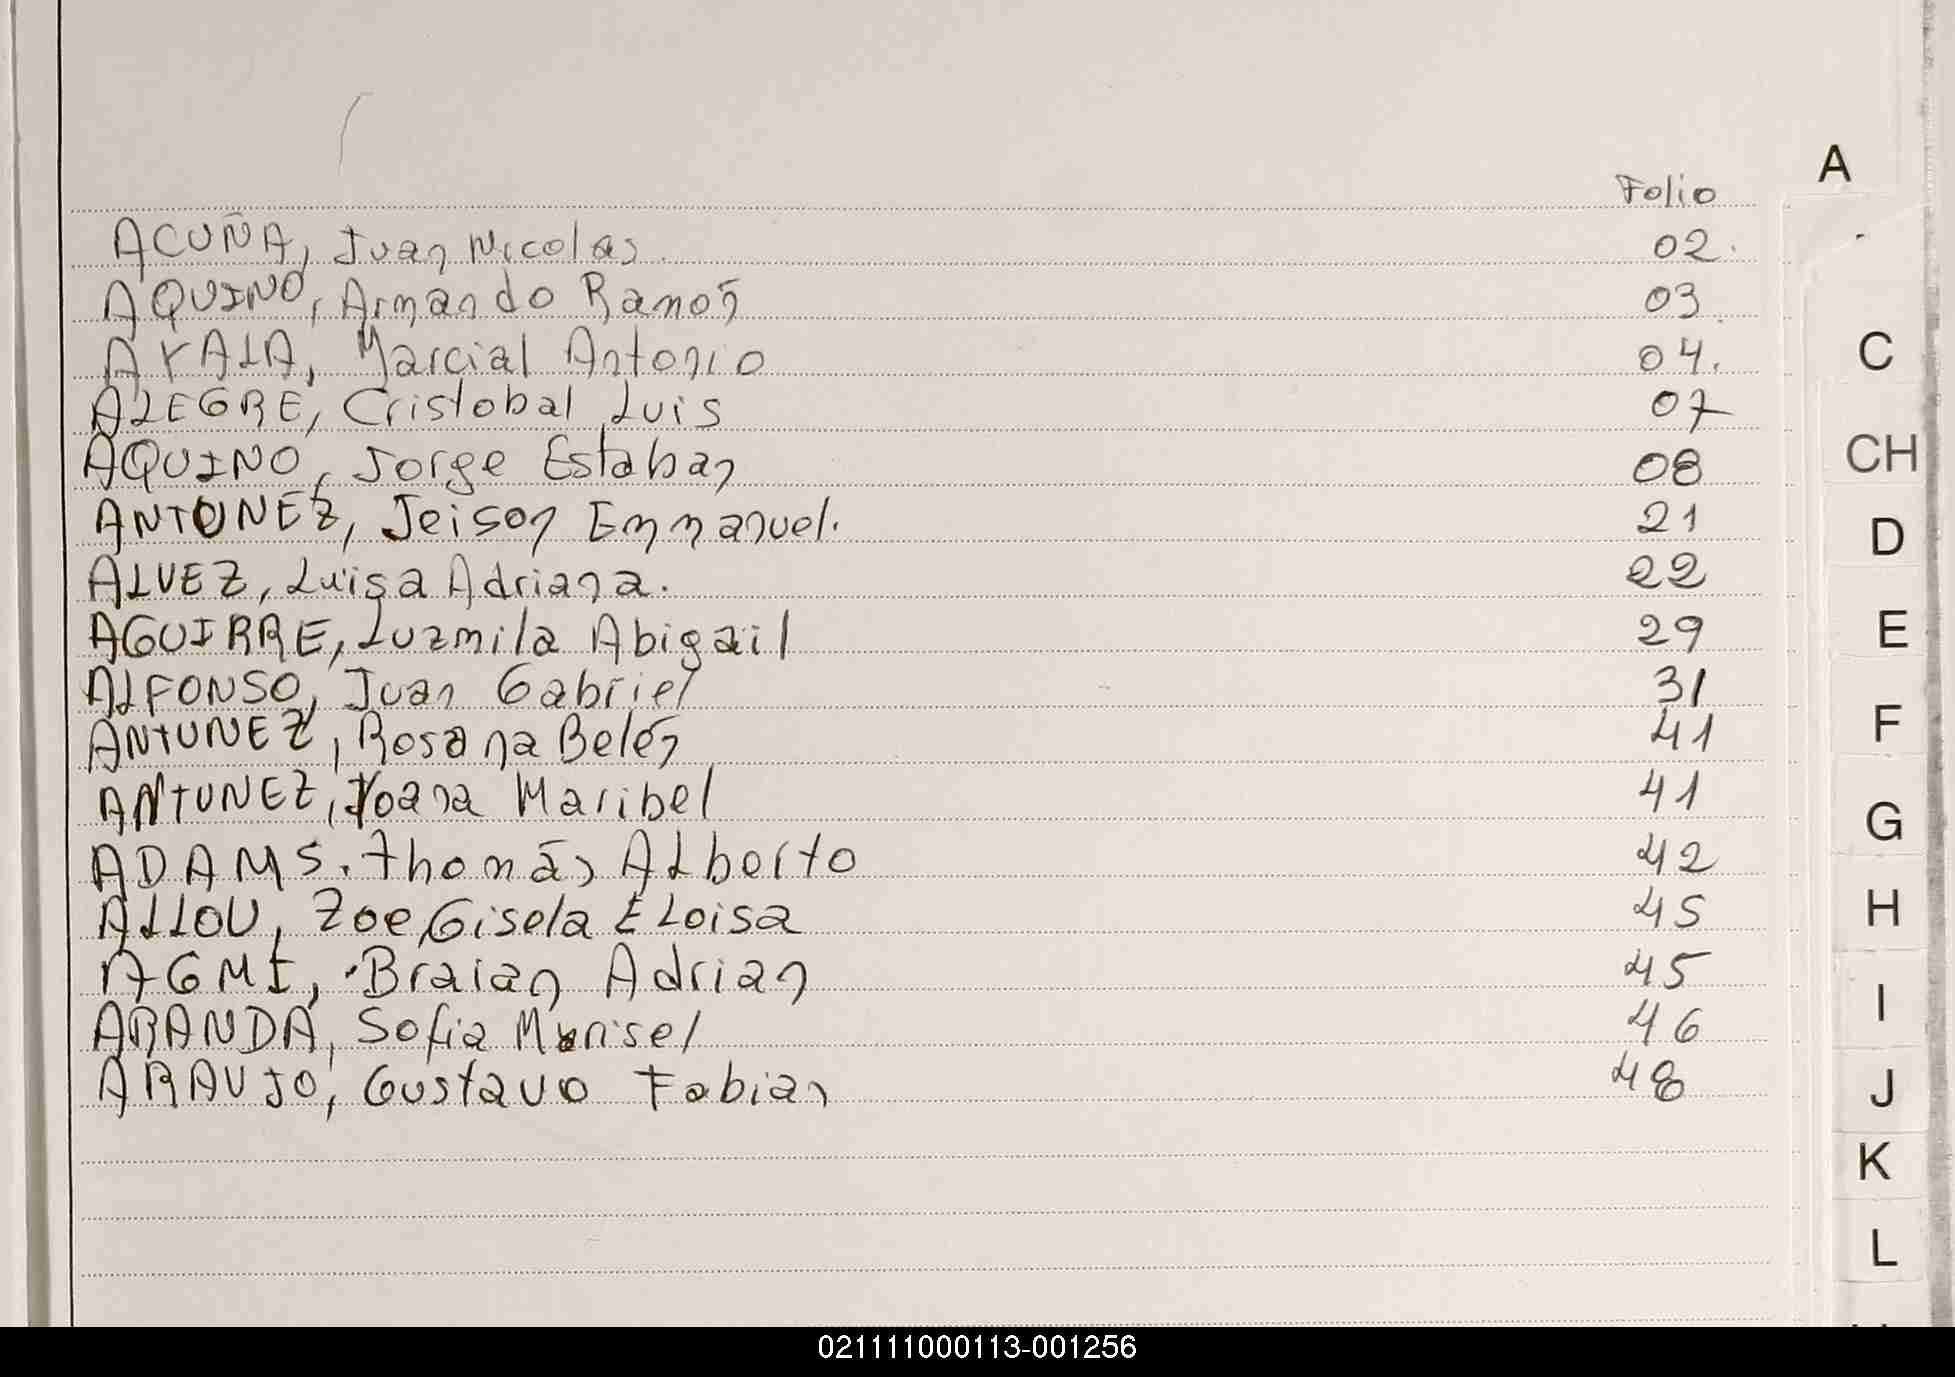 A
Folio
ACUÑA, Juan Nicolas 02.
AQUINO, Armando Ramón 03
AYALA, Marcial Antonio 04.
ALEGRE, Cristobal Luis 07
AQUINO, Jorge Estaban 08
ANTUNEZ, Jeison Emmanuel. 21
ALVEZ, Luisa Adriana. 22
AGUIRRE, Luzmila Abigail 29
ALFONSO, Juan Gabriel 31
ANTUNEZ, Rosana Belén 41
ANTUNEZ, Yoana Maribel 41
ADAMS. Thomás ALberto 42
ALLOU, Zoe Gisela ELoisa 45
AGMI, Braian Adrian 45
ARANDA, Sofia Marisel 46
ARAUJO, Gustavo Fabian 48
C
CH
D
E
F
G
H
I
J
K
L
021111000113-001256